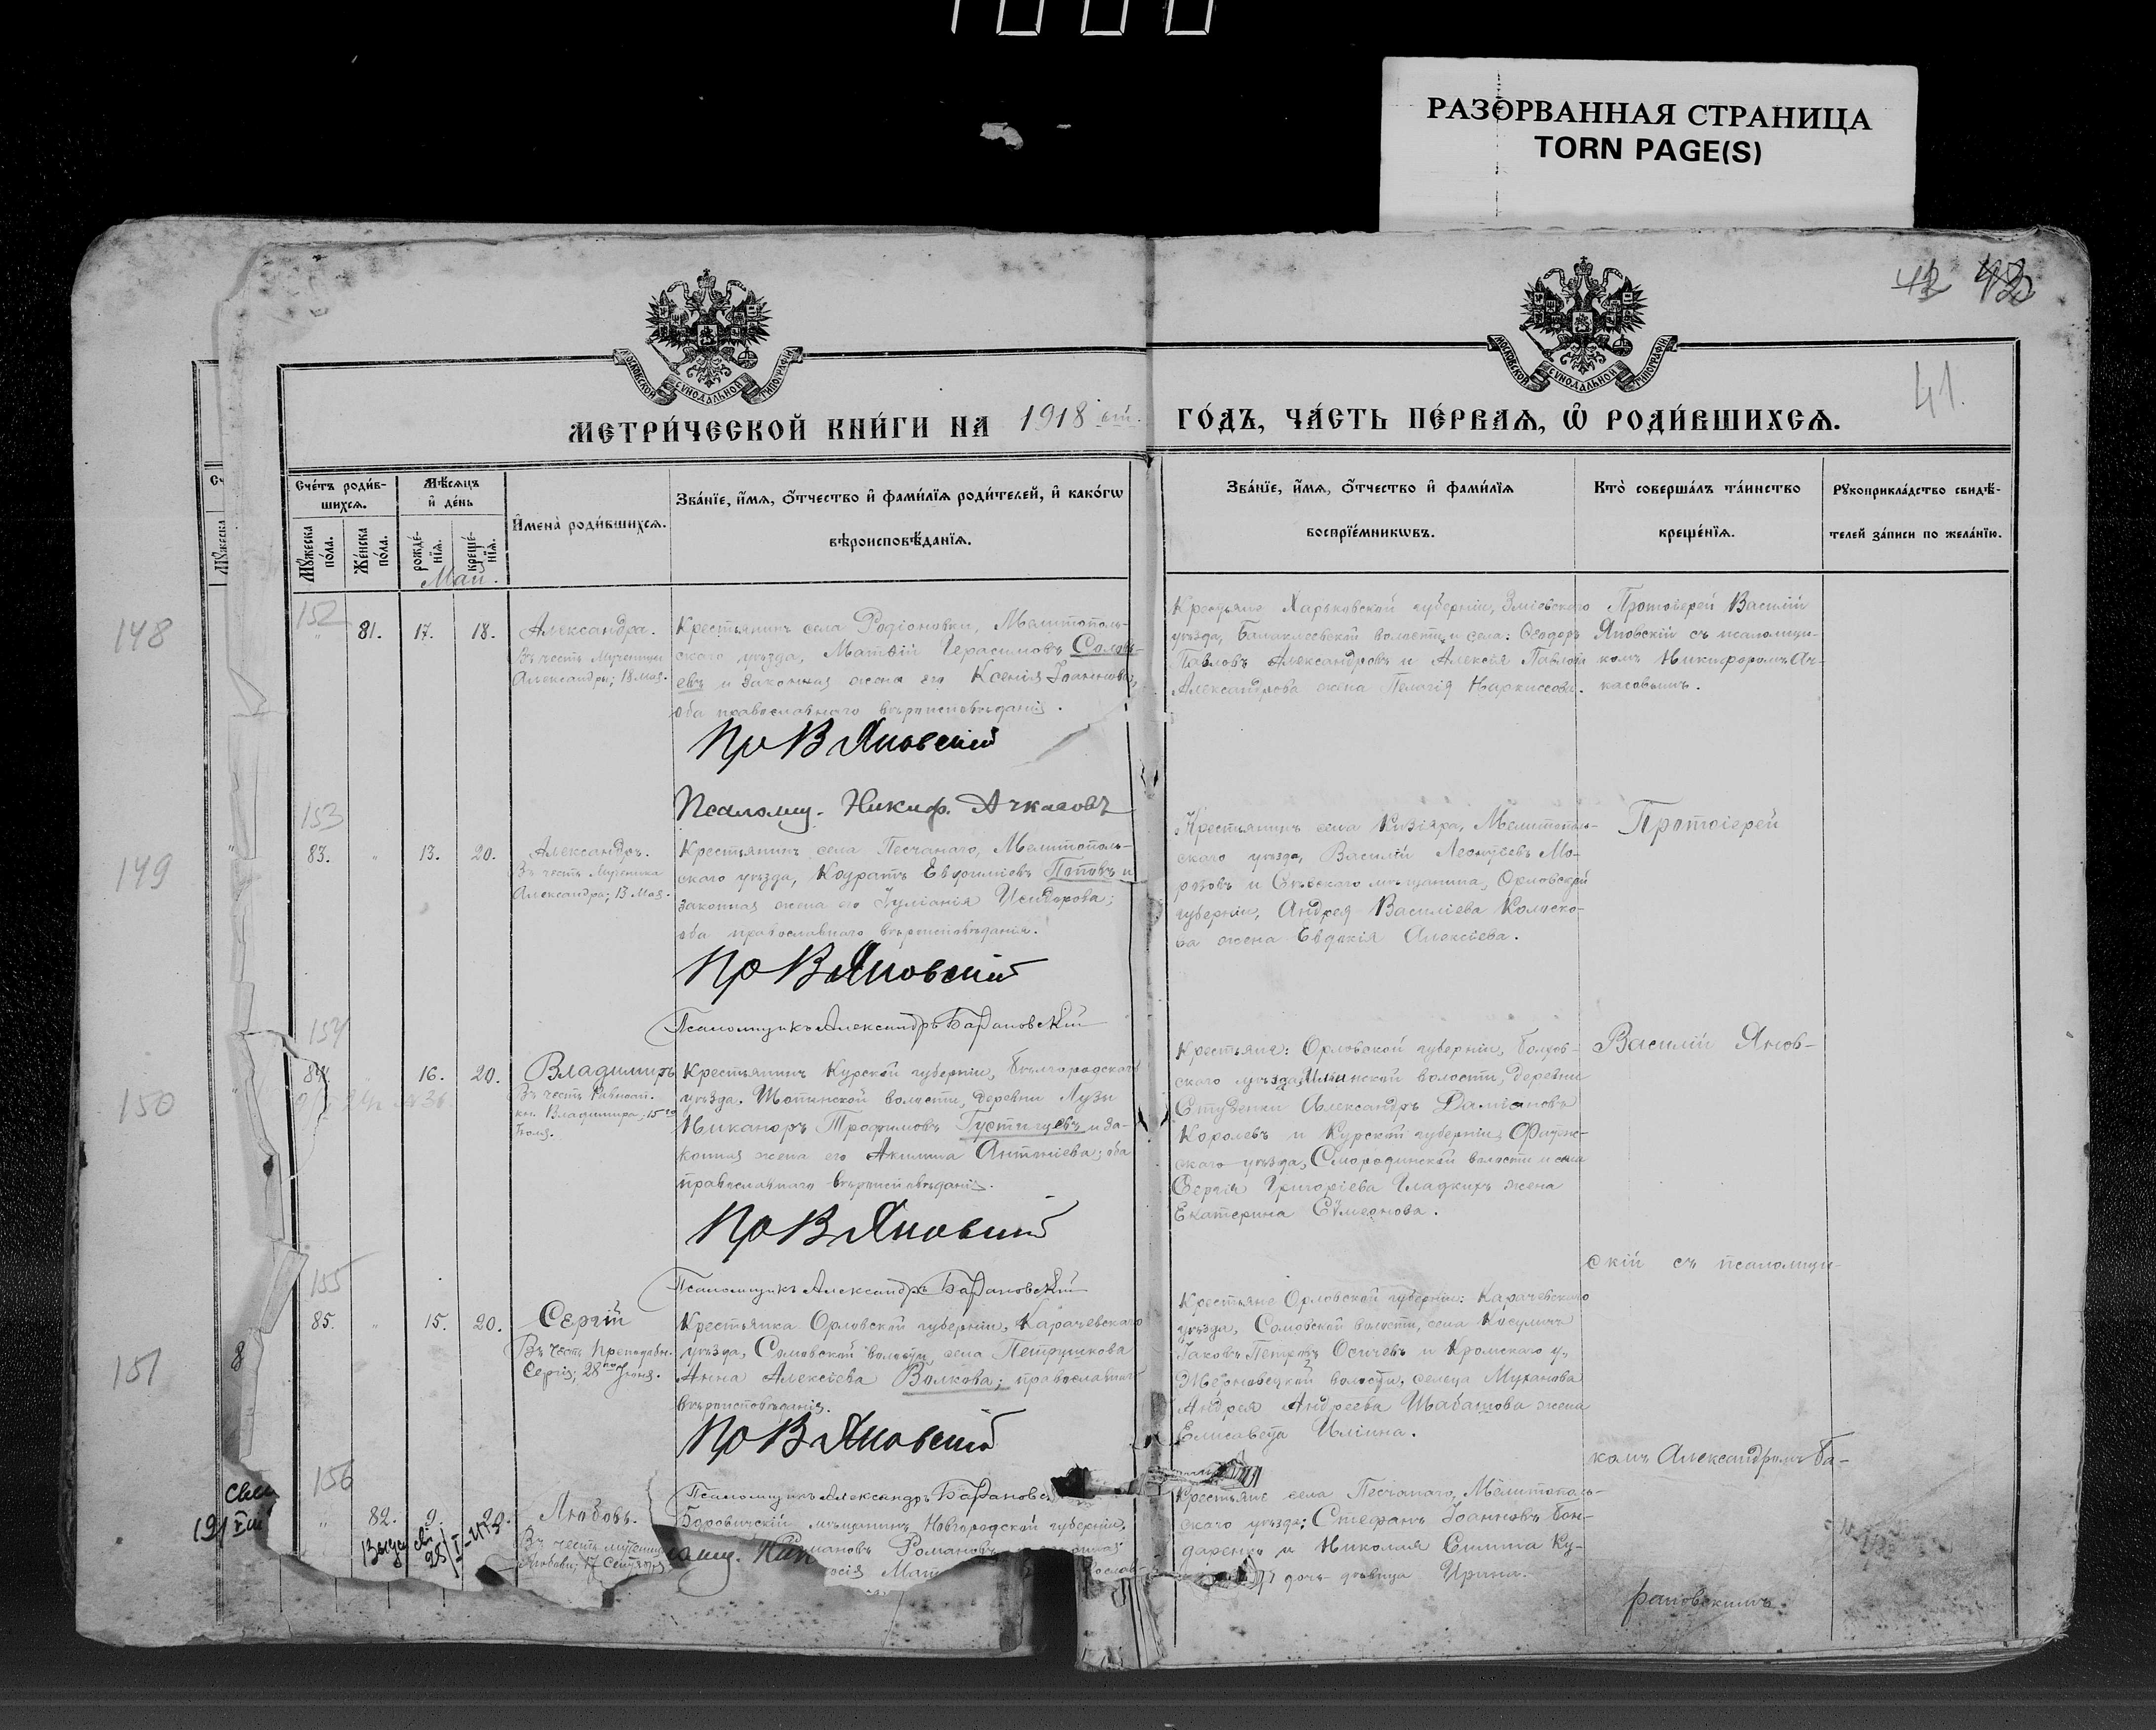 РАЗОРВАННАЯ СТРАНИЦА
TORN PAGE(S)
42
41.
МОСКОВСКОЙ СѴНОДАЛЬНОЙ ТИПОГРАФІИ
МОСКОВСКОЙ СѴНОДАЛЬНОЙ ТИПОГРАФІИ
МЕТРИ́ЧЕСКОЙ КНИ́ГИ НА 1918 ый.
ГО́ДЪ, ЧА́СТЬ ПЕ́РВАѦ, Ѡ҆ РОДИ́ВШИХСѦ.
Сче́тъ роди́в-
шихсѧ.
Мꙋ́жеска
по́ла.
Же́нска
по́ла.
Мѣ́сѧцъ
и҆ де́нь
рожде́-
нїѧ.
креще́-
нїѧ.
И҆мена̀ роди́вшихсѧ.
Зва́нїе, и҆́мѧ, о҆́тчество и҆ фами́лїѧ роди́телей, и҆ како́гѡ
вѣроисповѣ́данїѧ.
Зва́нїе, и҆́мѧ, о҆́тчество и҆ фами́лїѧ
воспрїе́мникѡвъ.
Кто̀ соверша́лъ та́инство
креще́нїѧ.
Рꙋкоприкла́дство свидѣ́-
телей за́писи по жела́нїю.
Май.
148
152
" 81. 17. 18.
Александра.
Въ честь Мученицы
Александры; 18 Мая.
Крестьянинъ села Родіоновки, Мелитополь-
скаго уѣзда, Матѳій Герасимовъ Соловь-
евъ и законная жена его Ксенія Іоаннова,
оба православнаго вѣроисповѣданія.
Пр В Яновскій
Псаломщ. Никиф. Ачкасовъ
Крестьяне Харьковской губерніи, Зміевскаго
уѣзда, Балаклеевской волости и села: Ѳеодоръ
Павловъ Александровъ и Алексѣя Павлова
Александрова жена Пелагія Наркиссова.
Протоіерей Василій
Яновскій съ псаломщи-
комъ Никифоромъ Ач-
касовымъ.
149
153
83. " 13. 20.
Александръ.
Въ честь Мученика
Александра; 13 Мая.
Крестьянинъ села Песчанаго, Мелитополь-
скаго уѣзда, Кодратъ Евфиміевъ Поповъ и
законная жена его Іуліанія Исидорова;
оба православнаго вѣроисповѣданія.
Пр В Яновскій
Псаломщикъ Александръ Барановскій
Крестьянинъ села Кизіяра, Мелитополь-
скаго уѣзда, Василій Леонтіевъ Мо-
розовъ и Сѣвскаго мѣщанина, Орловской
губерніи, Андрея Василіева Колоско-
ва жена Евдокія Алексіева.
Протоіерей
150
154
84. " 16. 20.
Владиміръ
Въ честь Равноап.
кн. Владиміра, 15го
Іюля.
Крестьянинъ Курской губерніи, Бѣлгородскаго
уѣзда. Шопинской волости, деревни Лузи
Никаноръ Трофимовъ Густилуевъ и за-
конная жена его Акилина Антоніева; оба
православнаго вѣроисповѣданія.
Пр В Яновскій
Псаломщикъ Александръ Барановскій
Крестьяне: Орловской губерніи, Болхов-
скаго уѣзда, Ильинской волости, деревни
Студенки Александръ Даміановъ
Королевъ и Курской губерніи, Фатеж-
скаго уѣзда, Смородинской волости и села
Сергія Григоріева Гладкихъ жена
Екатерина Сѵмеонова.
Василій Янов-
скій съ псаломщи-
151
155
85. " 15. 20.
Сергій
Въ честь Преподобн.
Сергія; 28го Іюня.
Крестьянка Орловской губерніи, Карачевскаго
уѣзда, Самовской волости, села Петрушкова
Анна Алексіева Волкова; православнаго
вѣроисповѣданія.
Пр В Яновскій
Псаломщикъ Александръ Барановс
Крестьяне Орловской губерніи: Карачевскаго
уѣзда, Самовской волости, села Косуличъ
Іаковъ Петровъ Осичевъ и Кромскаго у.,
волости, сельца Муханова
Андрея Андреева Шабанова жена
Елисавета Иліина.
комъ Александромъ Ба-
156
" 82. 9.
Любовь.
Въ честь мучениц
Любови; 17 Сентября
Боровичскій мѣщанинъ Новгородской губерніи,
мановъ Романовъ
осія Мат
Крестьяне села Песчанаго, Мелитополь-
скаго уѣзда: Стефанъ Іоанновъ Бон-
даренко и Николая Ку-
дочь дѣвица Ирина.
рановскимъ.